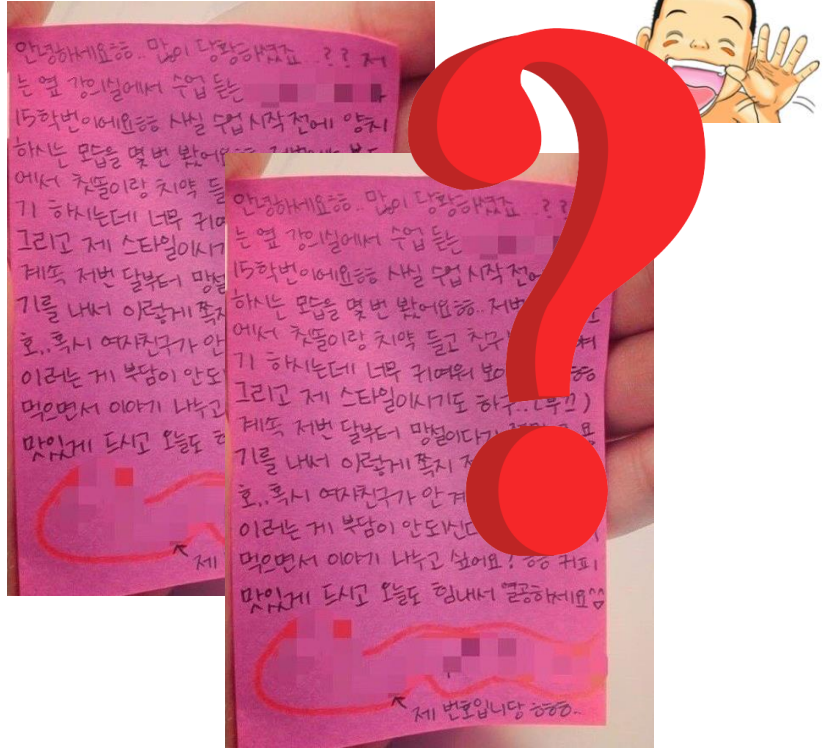 안녕하세요ㅎㅎ.. 많이 당황하셨죠..?? 저
는 옆 강의실에서 수업 듣는
15학번이에요ㅎㅎ 사실 수업시작 전에 양치
하시는 모습을 몇 번
에서 칫똘이랑 치약
기 하시는데 너무
그리고 제
계속 저번 달부터
기를 내서 이렇게
호..혹시 여자친구가
이러는 게 부담이
먹으면서 이야기 나누고
맛있게 드시고 오늘도
제
안녕하세요ㅎㅎ.. 많이 당황하셨죠..??
는 옆 강의실에서 수업 듣는
15학번이에요ㅎㅎ 사실 수업시작
하시는 모습을 몇 번 봤어요ㅎㅎ..
에서 칫똘이랑 치약 들고
기 하시는데 너무 귀여워
그리고 제 스타일이시기도 하구..(부끄)
계속 저번 달부터 망설이다가
기를 내서 이렇게 쪽지
호..혹시 여자친구가
이러는 게 부담이
먹으면서 이야기 나누고 싶어요! ㅎㅎ 커피
맛있게 드시고 오늘도 힘내서 열공하세요^^
제 번호입니당 ㅎㅎㅎ..